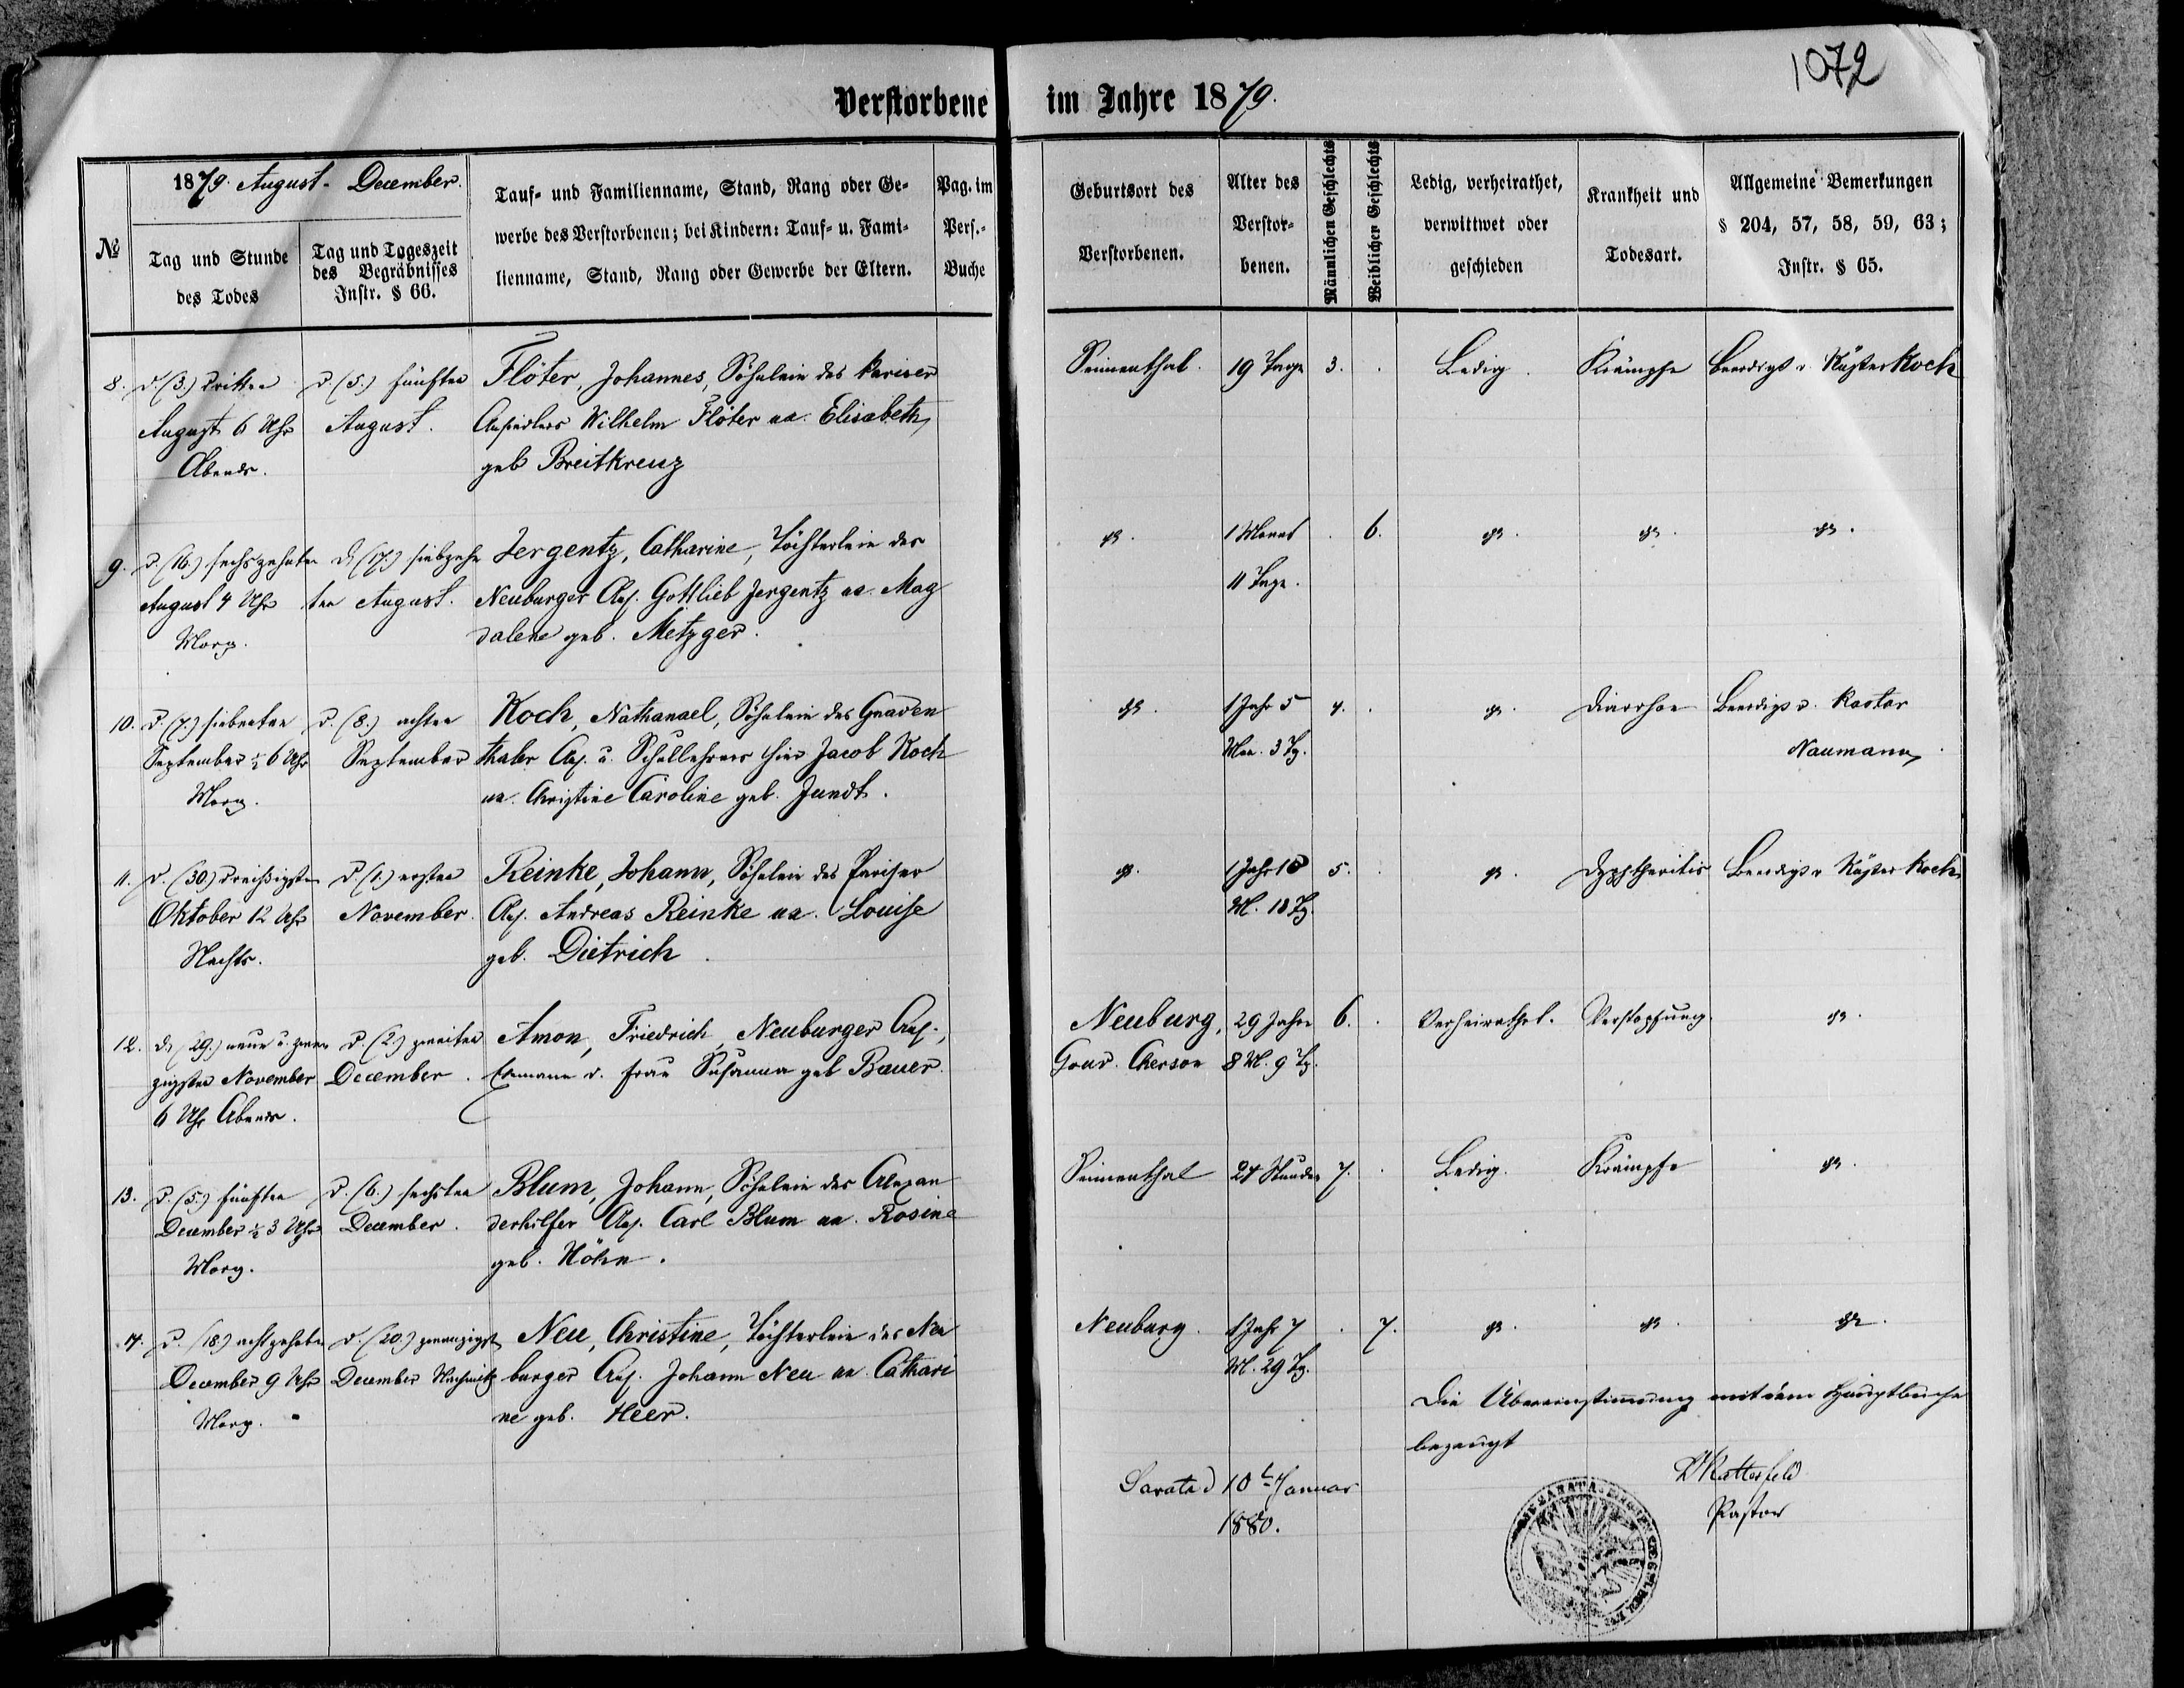 1072
Verstorbene im Jahre 1879.
1879. August - December.
№
Tag und Stunde
des Todes
Tag und Tageszeit
des Begräbnisses
Instr. § 66.
Tauf- und Familienname, Stand, Rang oder Ge-
werbe des Verstorbenen; bei Kindern: Tauf- u. Fami-
lienname, Stand, Rang oder Gewerbe der Eltern.
Pag. im
Pers.-
Buche
Geburtsort des
Verstorbenen.
Alter des
Verstor-
benen.
Männlichen Geschlechts
Weiblichen Geschlechts
Ledig, verheirathet,
verwittwet oder
geschieden
Krankheit und
Todesart.
Allgemeine Bemerkungen
§ 204, 57, 58, 59, 63;
Instr. § 65.
8. d. (3.) dritten d. (5.) fünften Flöter, Johannes, Söhnlein des Pariser Seimenthal. 19 Tage 3. Ledig. Krämpfe Beerdigt v. Küster Koch
August 6 Uhr August. Ansiedlers Wilhelm Flöter u. Elisabeth,
Abends. geb Breitkreuz
9. d. (16.) sechszehnten d. (17.) siebzehn Jergentz, Catharine, Töchterlein des 1 Monat 6.
August 4 Uhr ten August. Neuburger Ans. Gottlieb Jergentz u. Mag 11 Tage.
Morg. dalene geb. Metzger.
10. d. (7.) siebenten d. (8.) achten Koch, Nathanael, Söhnlein des Gnaden 1 Jahr 5 4. Diarrhoe Beerdigt v. Pastor
September ½ 6 Uhr September thaler Ans. u. Schullehrers hier Jacob Koch Mon. 3 Tg. Naumann
Morg. u. Christine Caroline geb. Jundt.
11. d. (30.) dreißigsten d. (1.) ersten Reinke, Johann, Söhnlein des Pariser 1 Jahr 10 5. Dyphtheritis Beerdigt v Küster Koch
Oktober 12 Uhr November. Ans. Andreas Reinke u. Louise M. 18 Tg.
Nachts. geb. Dietrich.
12. d. (29.) neun u. zwan d. (2.) zweiten Amon, Friedrich, Neuburger Ans., Neuburg, 29 Jahre 6. Verheirathet. Verstopfung.
zigsten November December. Ehemann d. Frau Susanna geb Bauer. Gouv. Cherson 8 M. 9 Tg.
6 Uhr Abends.
13. d. (5.) fünften d. (6.) sechsten Blum, Johann, Söhnlein des Alexan Seimenthal 24 Stunden 7. Ledig. Krämpfe
December ½ 3 Uhr December. derhilfer Ans. Carl Blum u. Rosine
Morg. geb. Höhn.
14. d. (18.) achtzehnten d. (20.) zwanzigst Neu, Christine, Töchterlein des Neu Neuburg. 1 Jahr 7 7.
December 9 Uhr December Nachmitg burger Ans. Johann Neu u. Cathari M. 29 Tg.
Morg. ne geb. Heer.
Die Übereinstimmung mit dem Hauptbuche
bezeugt
Sarata d 10t Januar
1880.
Katterfeld
Pastor
SARATA